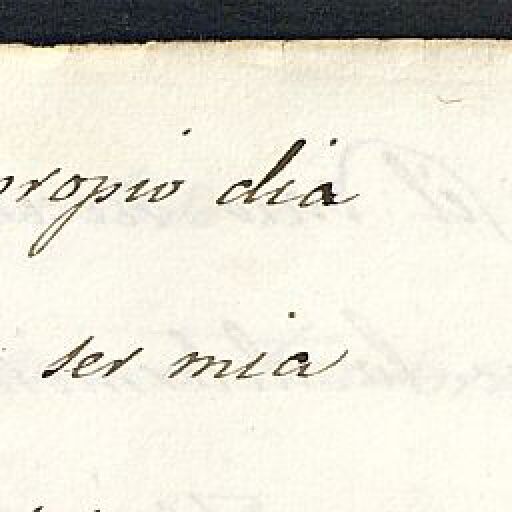 propio dia
ser mia